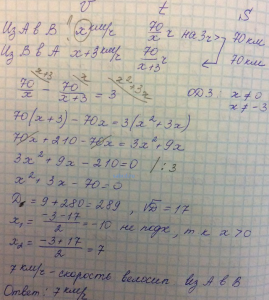 V t S
Из А в В x км/ч 70/x ч на 3ч > 70 км
Из В в А x+3 км/ч 70/x+3 ч 70 км
70/x - 70/x+3 = 3 ОДЗ x ≠ 0
x ≠ -3
70(x+3) - 70x = 3(x²+3x)
70x + 210 - 70x = 3x² + 9x
3x² + 9x - 210 = 0 / :3
x² + 3x - 70 = 0
D = 9 + 280 = 289, √D = 17
x₁ = -3-17/2 = -10 не подх, т к x > 0
x₂ = -3+17/2 = 7
7 км/ч - скорость велосип из А в В
Ответ: 7 км/ч